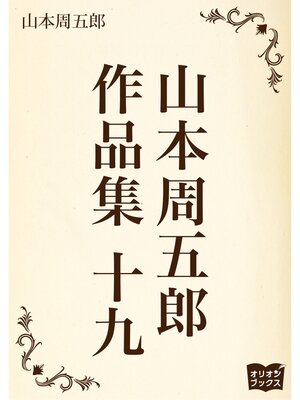 山本周五郎
山本周五郎
作品集 十九
オリオン
ブックス